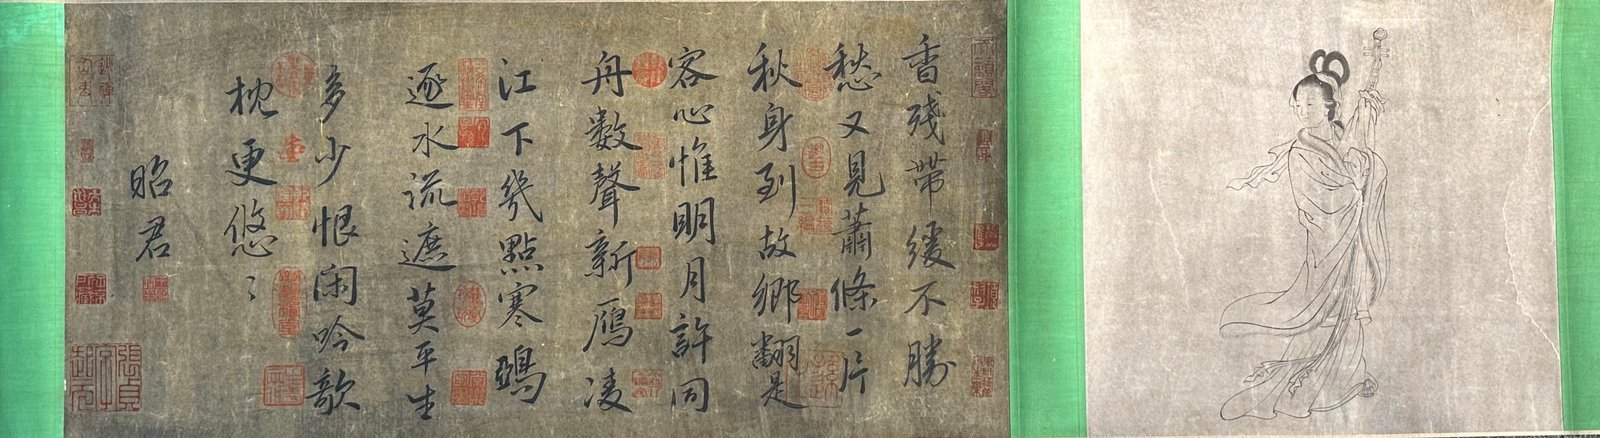 香殘帶緩不勝
愁又見蕭條一片
秋身到故鄉翻是
客心惟明月許同
舟數聲新雁凌
江下幾點寒鴉
逐水流遮莫平生
多少恨閑吟歌
枕更悠〻
昭君